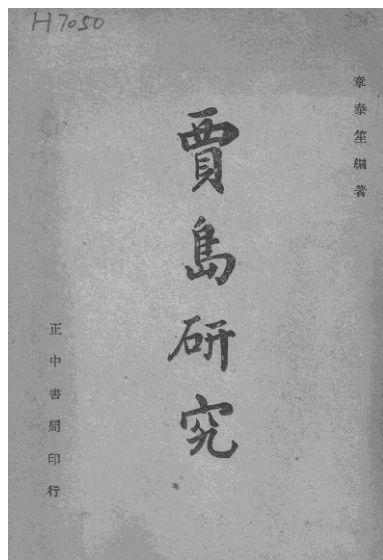 H7050
章泰笙編著
賈島研究
正中書局印行